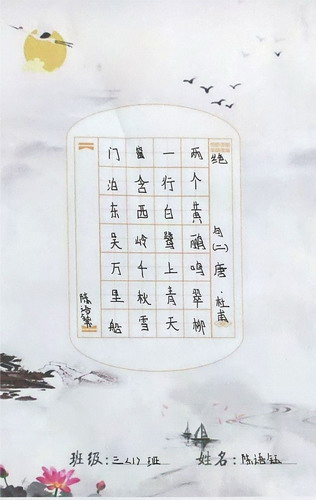 绝句(二)唐·杜甫
两个黄鹂鸣翠柳
一行白鹭上青天
窗含西岭千秋雪
门泊东吴万里船
陈
班级:三(1)班 姓名:陈